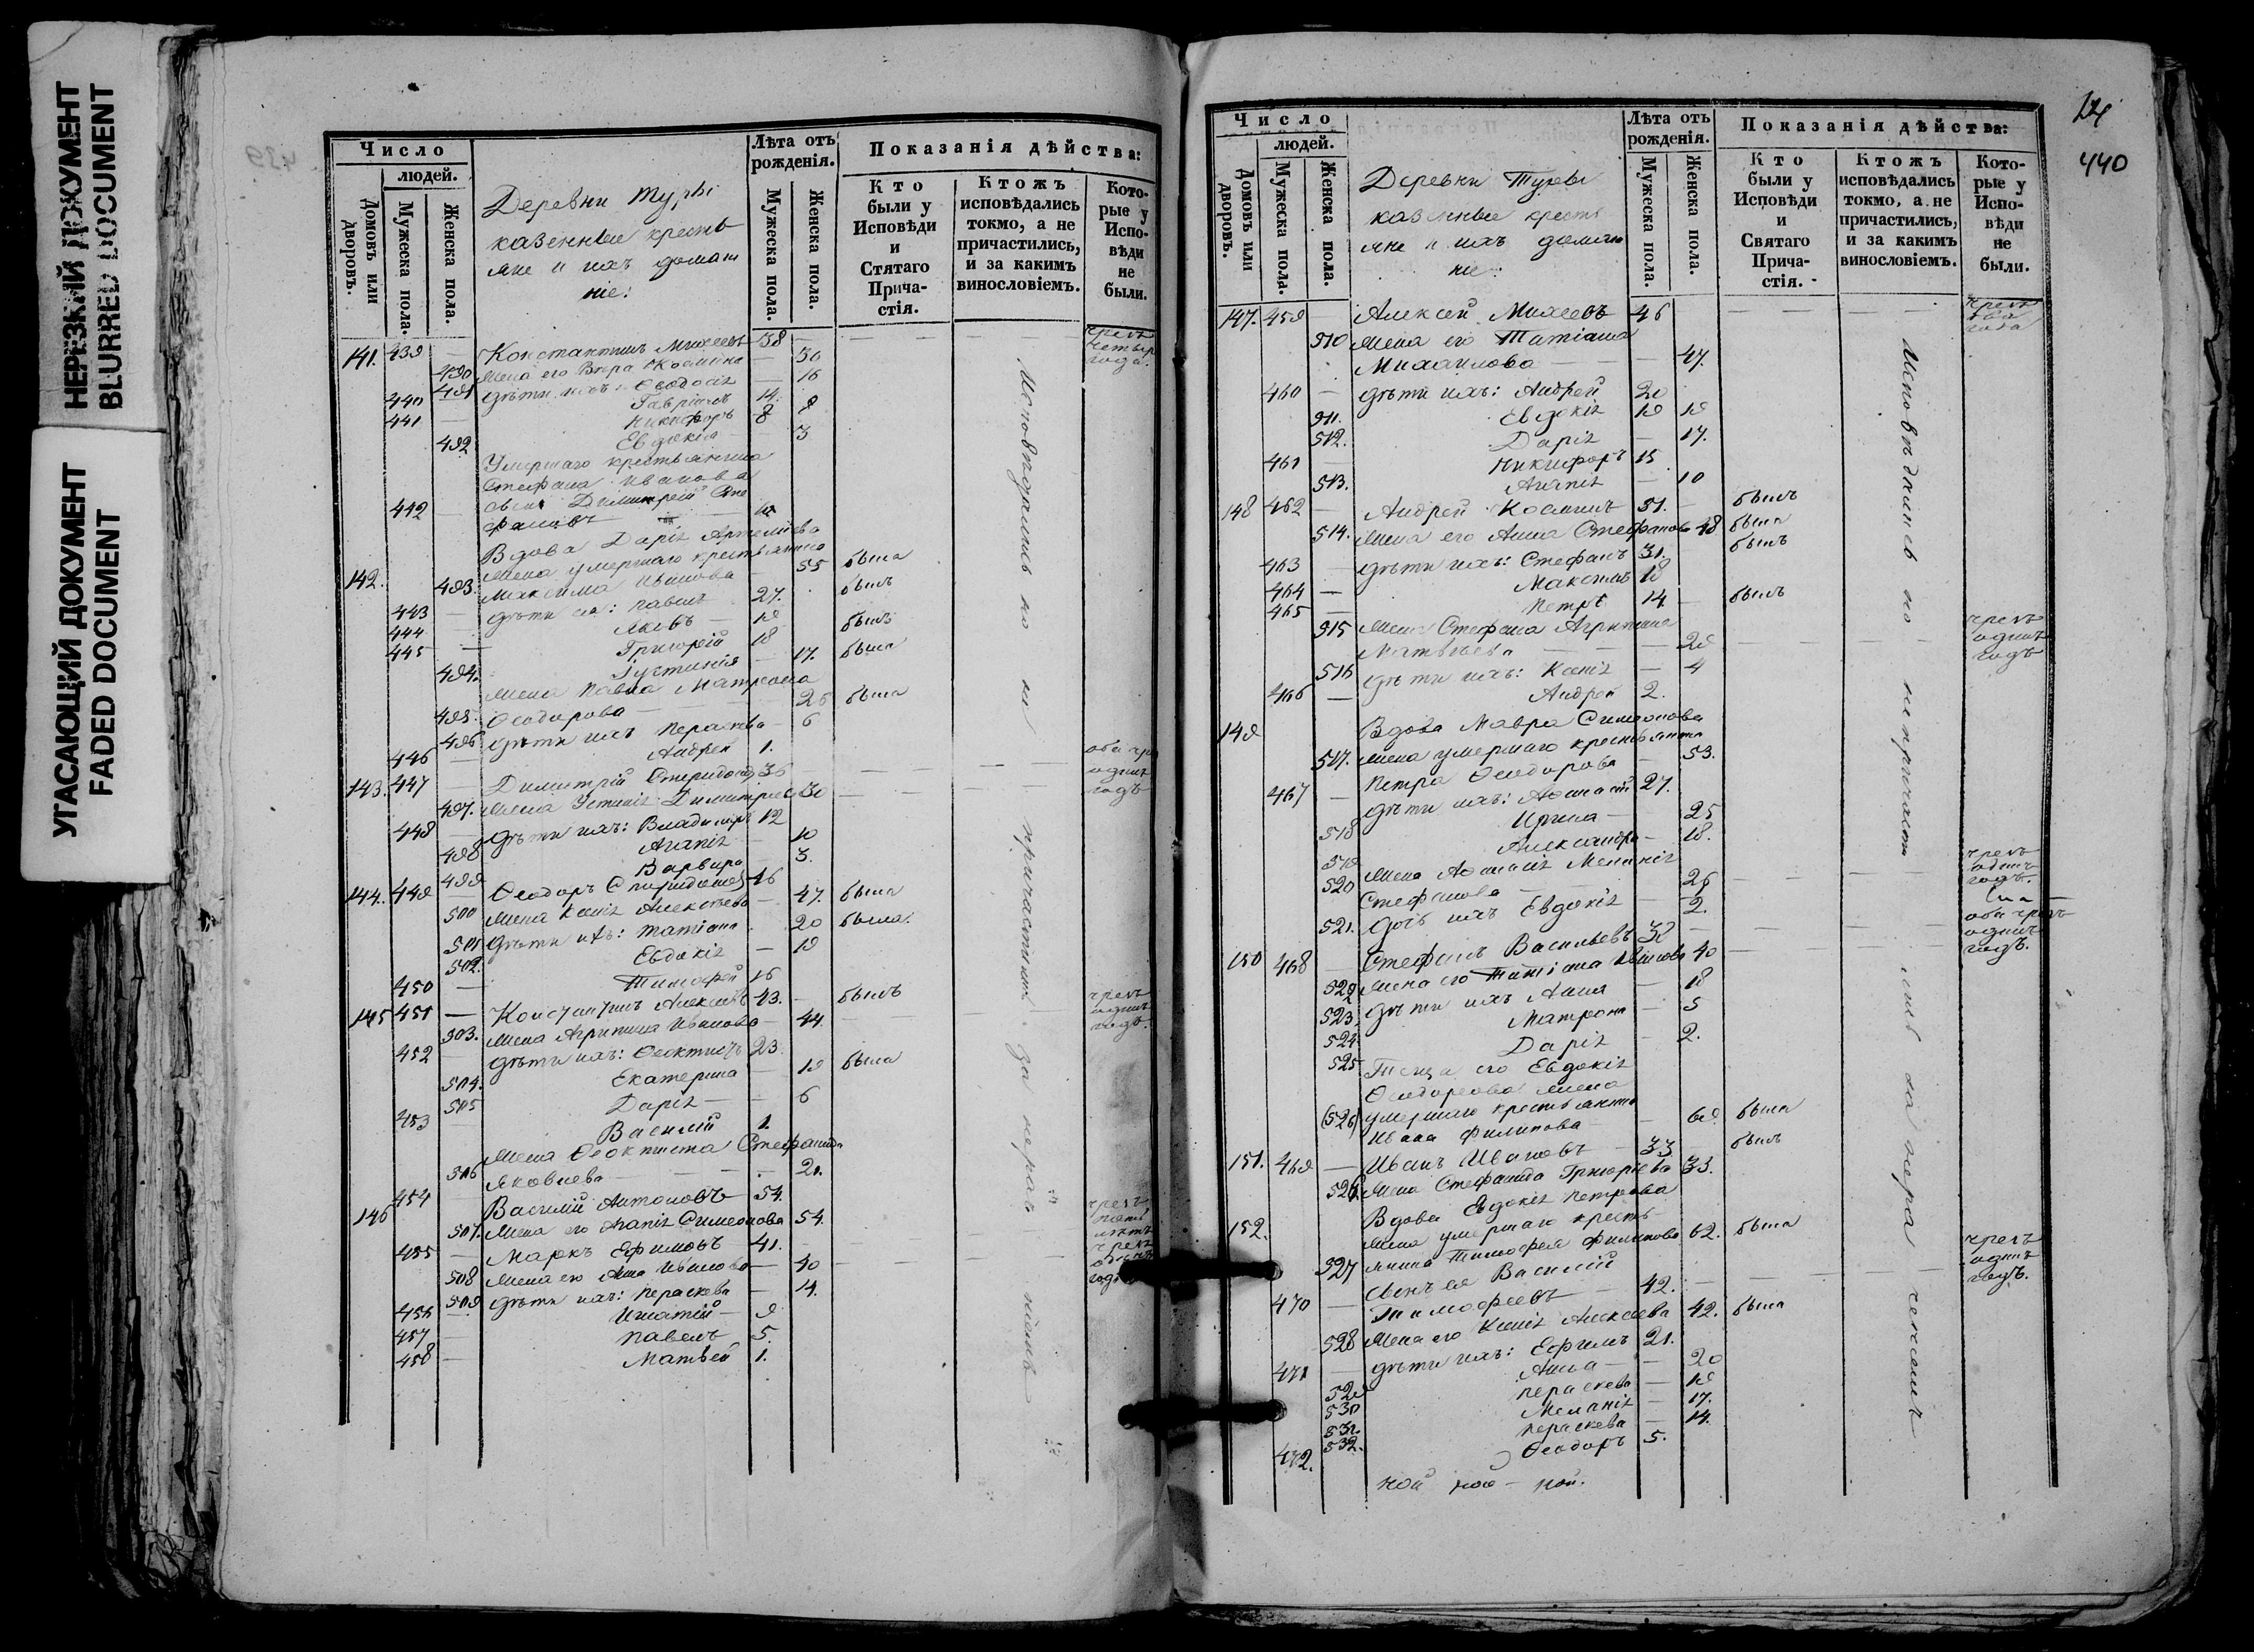 НЕРЕЗКИЙ ДОКУМЕНТ
BLURRED DOCUMENT
УГАСАЮЩИЙ ДОКУМЕНТ
FADED DOCUMENT
Число
людей.
Домовъ или дворовъ.
Мужеска пола.
Женска пола.
Деревни Турьи
казенные кресть
яне и ихъ домаш
ніе:
Лѣта отъ рожденія.
Мужеска пола.
Женска пола.
Показанія дѣйства:
Кто были у Исповѣди и Стятаго Прича-стія.
Ктожъ исповѣдались токмо, а не причастились, и за какимъ винословіемъ.
Кото-рые у Испо-вѣди не были.
141. 439 — Константинъ Михеевъ 38
490 Жена его Вѣра Космина — 30
491 дѣти ихъ: Ѳеодосія — 16
440 Гавріилъ 14.
441 — Никифоръ 8
492 Евдокія — 3
Умершаго крестьянина
Стефана Иванова
442 — сынъ Димитрій Сте
фановъ
Вдова Дарія Артеміева
Жена умершаго крестьянина
142. 493. Максима Иванова — 55 была
443 — дѣти ея: Павелъ 27. былъ
444 — Яковъ — 19
445 — Григорій 18 былъ
494. Іустинія — 17. была
Жена Павла Матрона
495. Ѳеодорова — 26 была
496 дѣти ихъ Параскева — 6
446 — Андрей 1.
143. 447 — Димитрій Спиридоновъ 36
оба чрезъ
одинъ
годъ
497. Жена Устинія Димитріева 30
448 — дѣти ихъ: Владимиръ 12
498 Агапія — 10
499 Варвара 3.
144. 449 — Ѳеодоръ Спиридоновъ 46
500 Жена Ксенія Алексѣева — 47. была
501 дѣти ихъ: Татіана 20 была.
502. Евдокія — 19
450 — Тимофей 16
145 451 — Константинъ Алексѣевъ 43. — былъ
503. Жена Агрипина Иванова — 44.
чрезъ
одинъ
годъ.
452 — дѣти ихъ: Ѳеоктистъ 23.
504. Екатерина — 19 была
505 Дарія — — 6
453 — Василій 1.
Жена Ѳеоктиста Стефанида
506 Яковлева — — — 21.
146 454 Василій Антоновъ 54.
507. Жена его Агапія Симеонова 54.
чрезъ
пять
лѣтъ
455 — Маркъ Ефимовъ 41. —
508 Жена его Анна Иванова — 40
чрезъ
одинъ
годъ
509 дѣти ихъ: Параскева — 14.
456 — Игнатій — 9
457 — Павелъ 5.
458 — Матвей 1.
Исповѣдались но не причастились за неради ніемъ
14
440
Число
людей.
Домовъ или дворовъ.
Мужеска пола.
Женска пола.
Деревни Турьи
казенные кресть
яне и ихъ домаш
ніе:
Лѣта отъ рожденія.
Мужеска пола.
Женска пола.
Показанія дѣйства:
Кто были у Исповѣди и Святаго Прича-стія.
Ктожъ исповѣдались токмо, а не причастились, и за какимъ винословіемъ.
Кото-рые у Испо-вѣди не были.
147. 459 Алексѣй Михеевъ 46
чрезъ
два
года
510 Жена его Татіана
Михаилова — — 47.
460 — дѣти ихъ: Андрей 20
511. Евдокія 19
512. Дарія — 17.
461 — Никифоръ 15
513. Агапія — 10
148 462 — Андрей Косминъ 51. — былъ
514. Жена его Анна Стефанова 48 была
463 — дѣти ихъ: Стефанъ 31. былъ
464 — Максимъ 18
465 — Петръ 14 — былъ
515 Жена Стефана Агрипина
Матвѣева — — — 29
чрезъ
одинъ
годъ
516 дѣти ихъ: Ксенія — 4
466 — Андрей 2.
149 Вдова Мавра Симеонова
517. жена умершаго крестьянина
Петра Ѳеодорова — 53.
467 — дѣти ихъ: Аѳанасій 27.
518 Ирина — 25
519 Александра — 18.
520 Жена Аѳанасія Меланія
Стефанова — — 26
чрезъ
одинъ
годъ.
521. дочь ихъ Евдокія — 2.
150 468 — Стефанъ Васильевъ 38
оба чрезъ
одинъ
годъ.
522 Жена его Татіана Иванова 40
523 дѣти ихъ Анна — 18
524 Матрона — 5
525 Дарія — 2.
Теща его Евдокія
Ѳеодорова жена
(526) умершаго крестьянина
Ивана Филипова — 69. была
151. 469 — Иванъ Ивановъ — 33 былъ
526. Жена Стефанида Григоріева 33.
152. Вдова Евдокія Петрова
Жена умершаго кресть-
527 янина Тимофея Филипова 62. была
Сынъ ея Василій
470 — Тимофеевъ — 42.
чрезъ
одинъ
годъ.
528 Жена его Ксенія Алексеева 42. была
471 — дѣти ихъ: Ефимъ 21.
529 Анна — — 20
530 Параскева — 19
531. Меланія — 17.
532. Параскева — 14.
472. Ѳеодоръ 5.
Исповѣдались но не причасти лись за неради ніемъ